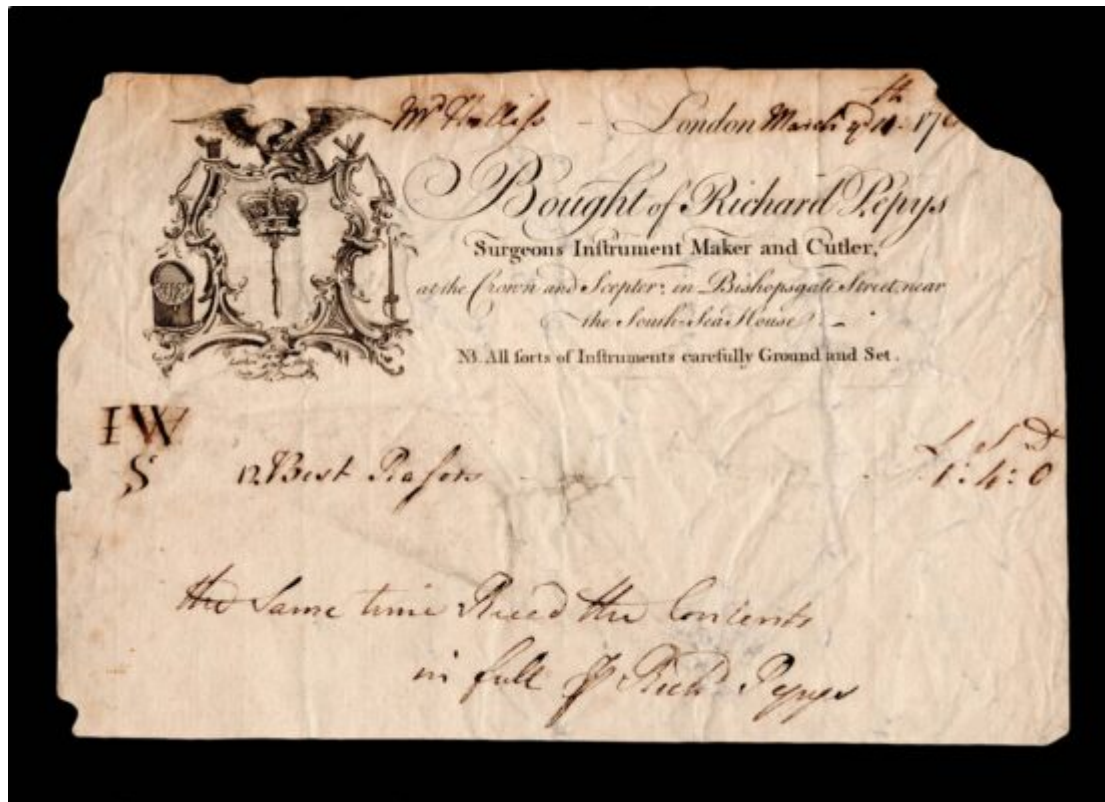 London March ye 11th 176
Bought of Richard Pepys
Surgeons Inſtrument Maker and Cutler,
at the Crown and Scepter, in Bishopsgate Street, near
the South-Sea House
NB. All ſorts of Inſtruments carefully Ground and Set.
IW
S
L S D
12 Best Raſors - - - 1:4:0
the Same time Reced the Contents
in full Richd Pepys